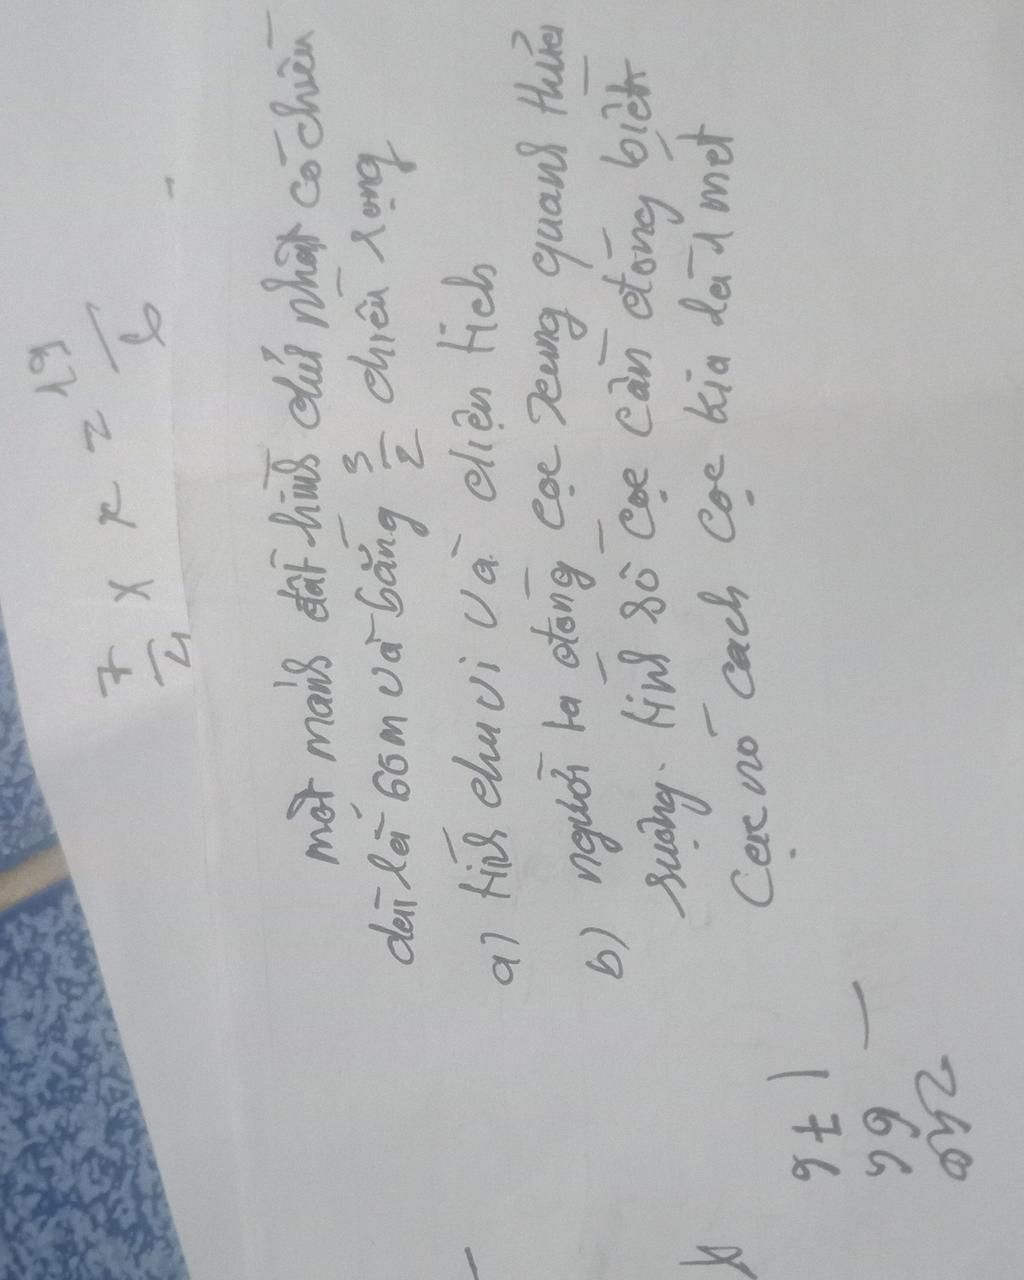 7/4 x x = 19/6
một mảnh đất hình chữ nhật có chiều
dài là 66m và bằng 3/2 chiều rọng
a) tính chu vi và diện tích
b) người ta đóng cọc xung quanh thửa
ruộng. tính số cọc cần đóng biết
cọc nọ cách cọc kia là 1 mét